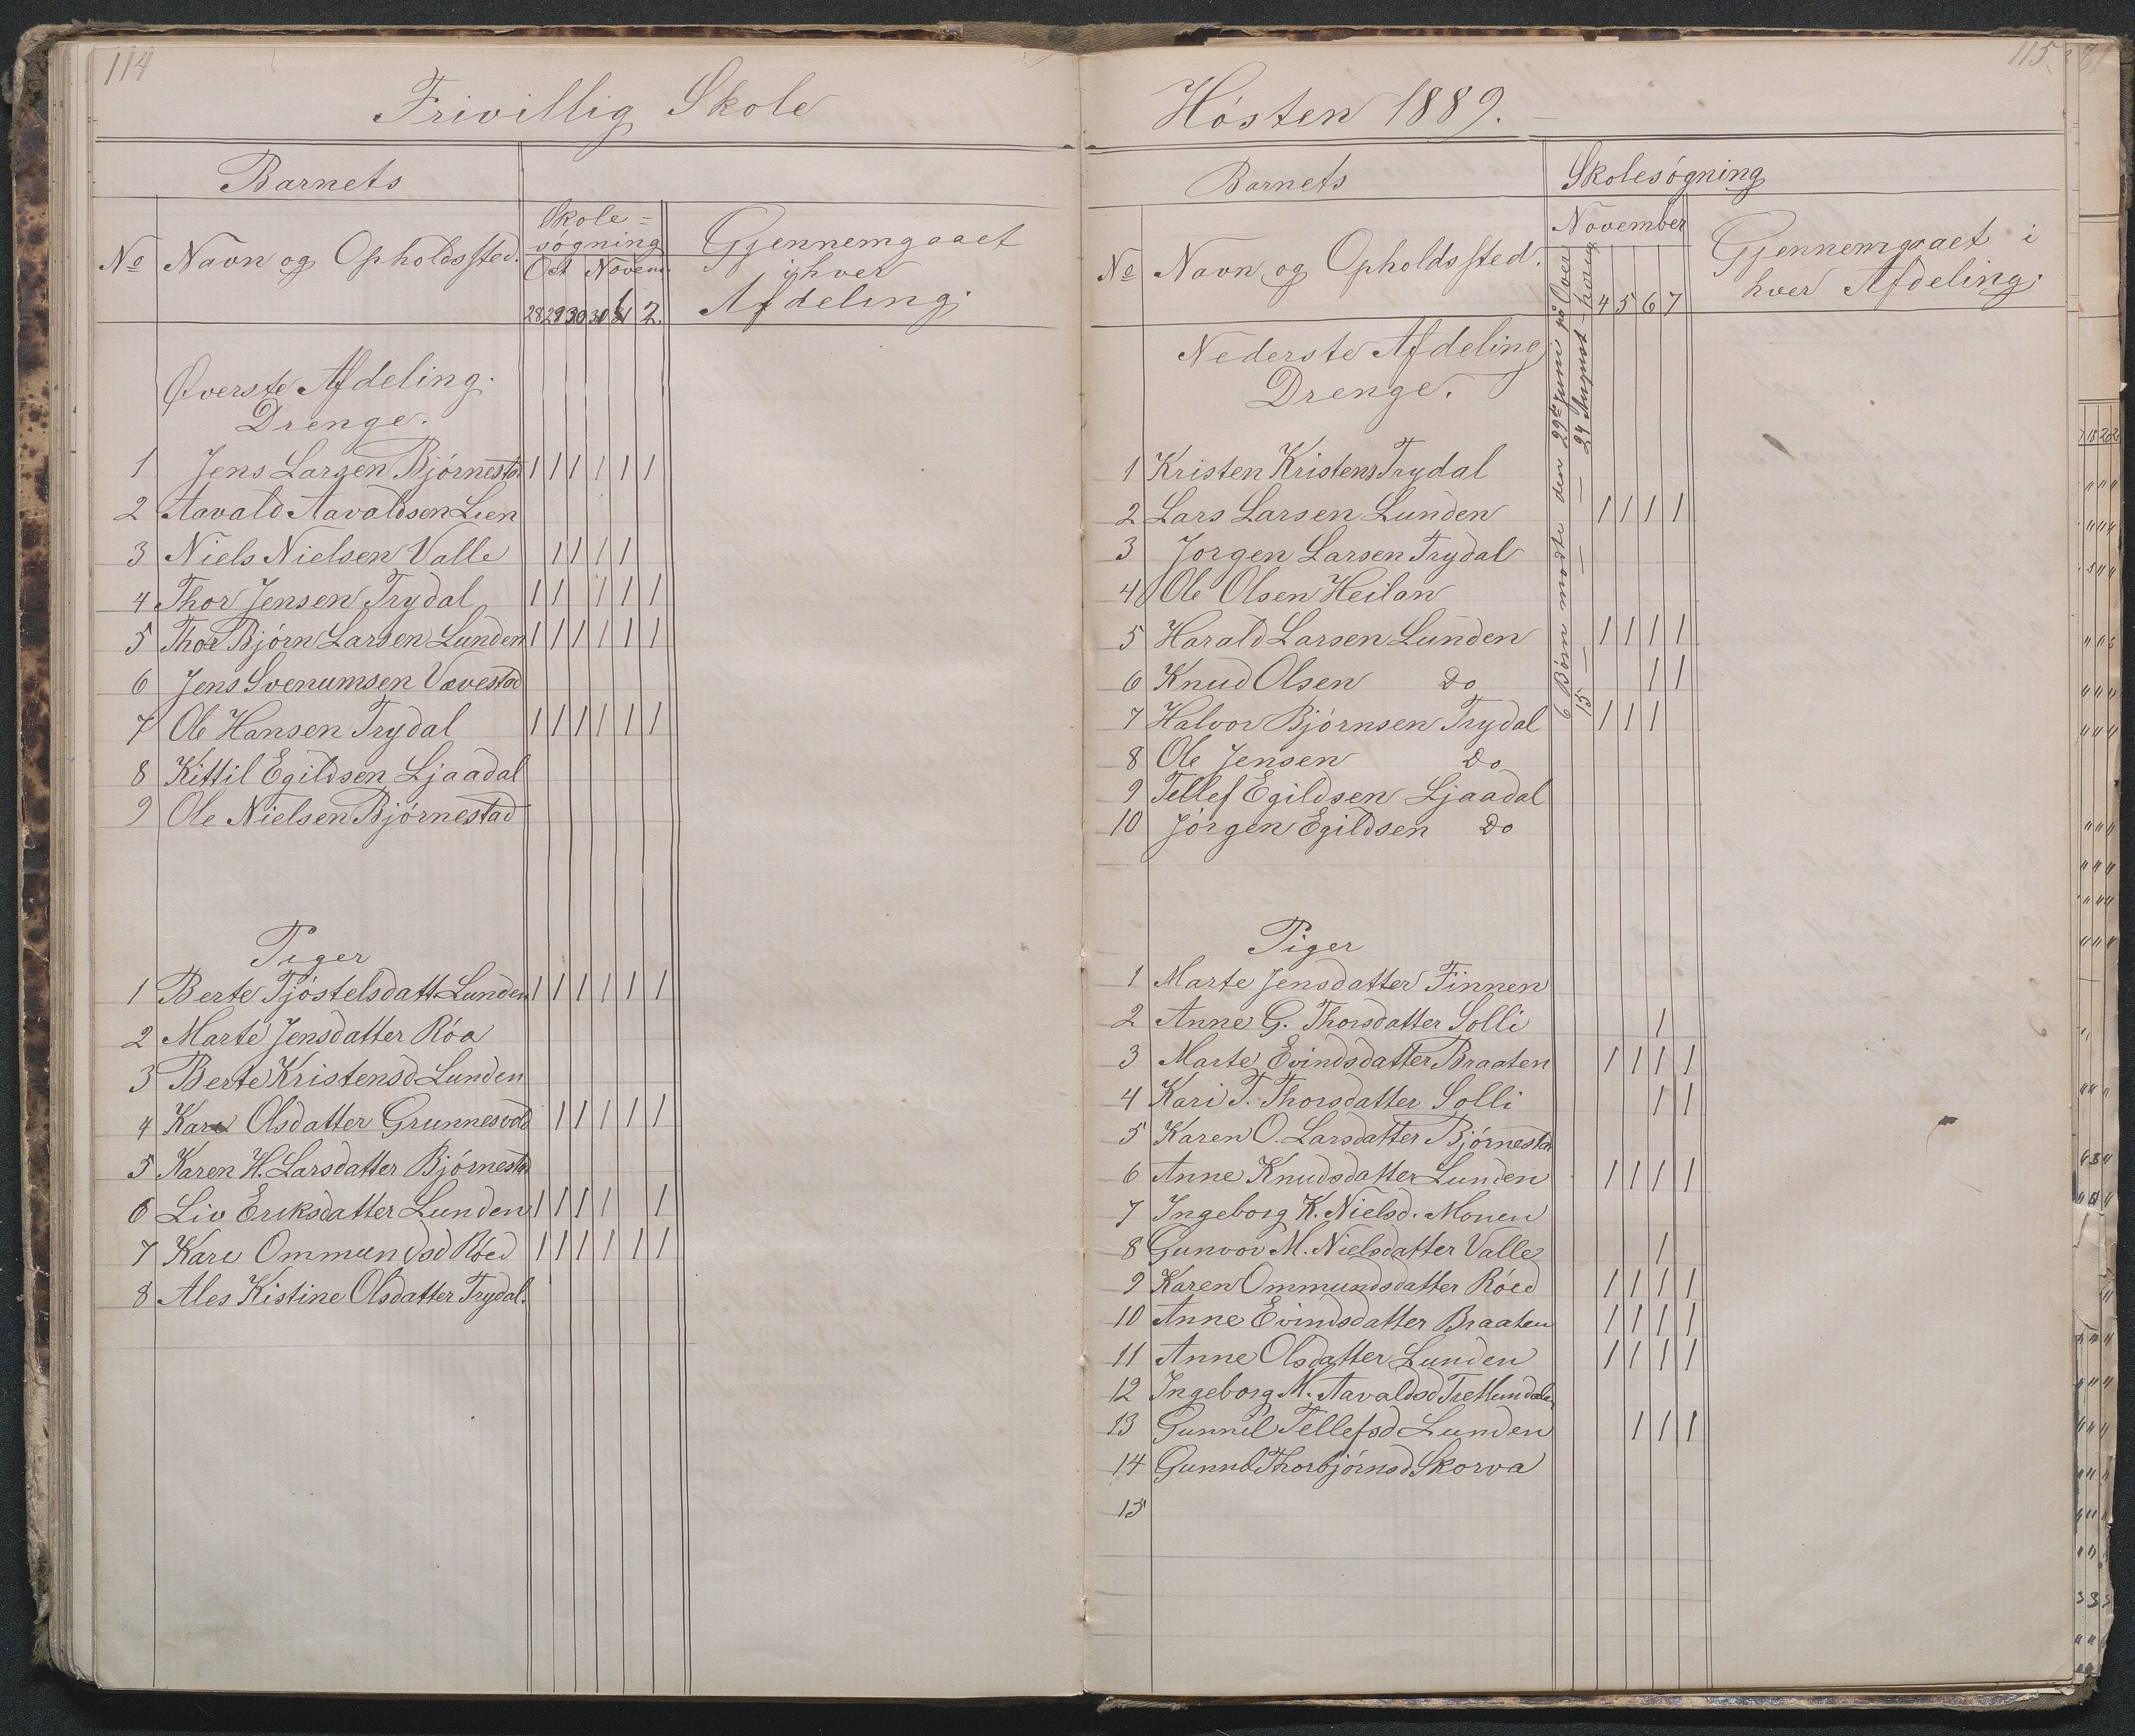 114
Frivillig Skole
Barnets
No Navn og Opholdssted.
Skole=
søgning
Oct Novem
28 29 30 2
Gjennemgaaet
i hver
Afdeling.
Øverste Afdeling.
Drenge.
1 Jens Larsen Bjørnestad 1 1 1 1 1 1
2 Aavald Aavaldsen Lien
3 Niels Nielsen Valle 1 1 1 1
4 Thor Jensen Trydal 1 1 1 1 1
5 Thor Bjørn Larsen Lunden 1 1 1 1 1 1
6 Jens Svenumsen Vævestad
7 Ole Hansen Trydal 1 1 1 1 1 1
8 Kittil Egildsen Ljaadal
9 Ole Nielsen Bjørnestad
Piger
1 Berte Tjøstelsdatt Lunden 1 1 1 1 1 1
2 Marte Jensdatter Róa
3 Berte Kristensd Lunden
4 Kari Olsdatter Grunnesvold 1 1 1 1 1
5 Karen H. Larsdatter Bjørnestad
6 Liv Eriksdatter Lunden 1 1 1 1 1
7 Kari Ommundsd Róed 1 1 1 1 1 1
8 Ales Kistine Olsdatter Trydal.
115
Høsten 1889.
Barnets
Skolesøgning
No Navn og Opholdssted.
November
4 5 6 7
Gjennemgaaet i
hver Afdeling.
6 Børn mødte den 29de Juni på Over
15 — — — 24 August —
Nederste Afdeling
Drenge.
1 Kristen Kristens Trydal
2 Lars Larsen Lunden 1 1 1 1
3 Jorgen Larsen Trydal
4 Ole Olsen Heilan
5 Harald Larsen Lunden 1 1 1 1
6 Knud Olsen Do 1 1
7 Halvor Bjørnsen Trydal 1 1 1
8 Ole Jensen Do
9 Tellef Egildsen Ljaadal
10 Jørgen Egildsen Do
Piger
1 Marte Jensdatter Finnen
2 Anne G. Thorsdatter Solli 1
3 Marte Evindsdatter Braaten 1 1 1 1
4 Kari T. Thorsdatter Solli 1 1
5 Karen O. Larsdatter Bjørnestad
6 Anne Knudsdatter Lunden 1 1 1 1
7 Ingeborg K. Nielsd. Monen
8 Gunvor M. Nielsdatter Valle 1
9 Karen Ommundsdatter Róed 1 1 1 1
10 Anne Evindsdatter Braaten 1 1 1 1
11 Anne Olsdatter Lunden 1 1 1 1
12 Ingeborg M. Aavaldsd
13 Gunnil Tellefsd Lunden 1 1 1
14 Gunnil Thorbjørnsd Skorva
15